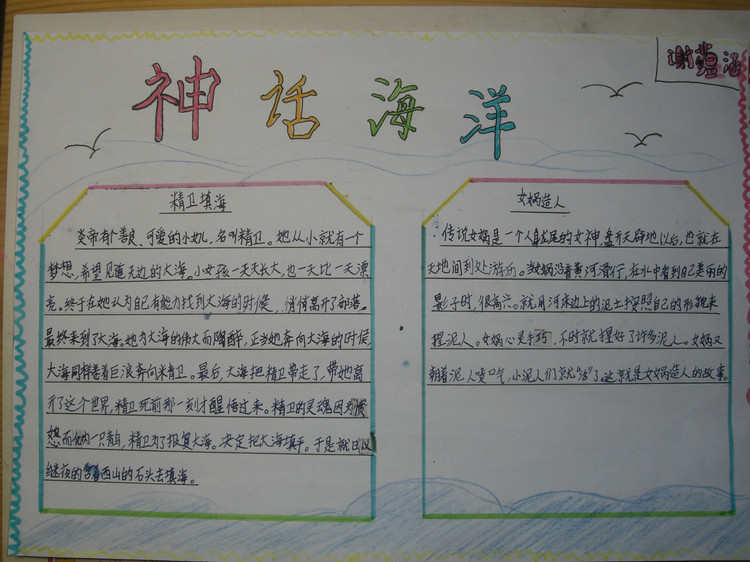 神话海洋
精卫填海
炎帝有个善良、可爱的小女儿，名叫精卫。她从小就有一个
梦想，希望见道无边的大海。小女孩一天天长大，也一天比一天漂
亮。终于在她认为自己有能力找到大海的时候，悄悄离开了部落。
最终来到了大海。她为大海的伟大而陶醉，正当她奔向大海的时候，
大海同样卷着巨浪奔向米精卫。最后，大海把精卫带走了，带她离
开了这个世界，精卫死前那一刻才醒悟过来。精卫的灵魂因为
想而化为一只青鸟，精卫为了报复大海。决定把大海填平。于是就日以
继夜的含着西山的石头去填海。
女娲造人
传说女娲是一个人首龙尾的女神，盘古开天辟地以后，也就在
天地间到处游历。当女娲沿着黄河滑行，在水中看到自己美丽的
影子时，很高兴。就用河床边上的泥土按照自己的形貌来
捏泥人。女娲心灵手巧，不时就捏好了许多泥人。女娲又
朝着泥人喷口气，小泥人们就"活"了。这就是女娲造人的故事。